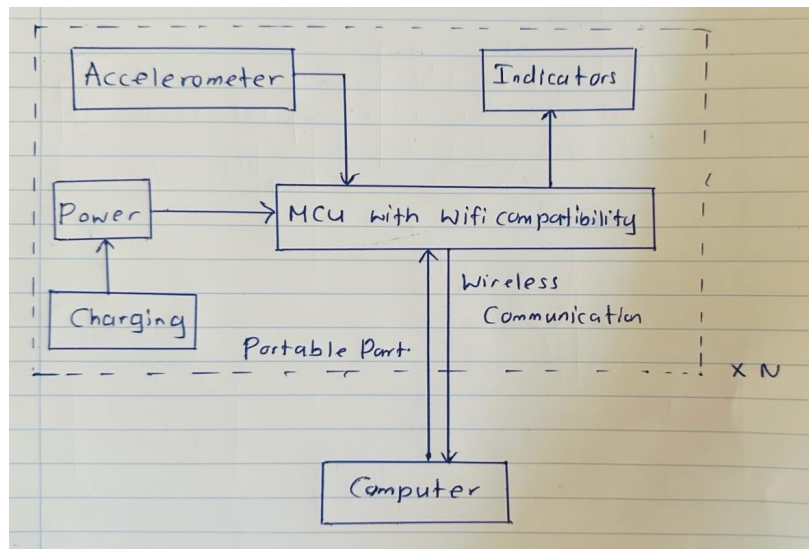 Accelerometer
Indicators
Power
MCU with Wifi compatibility
Charging
Wireless
Communication
Portable Part.
X N
Computer